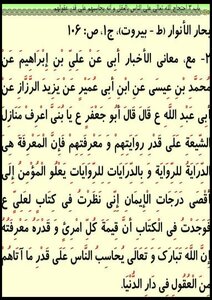 بحار الأنوار (ط - بيروت)، ج۱، ص: ۱۰۶
۲- مع، معاني الأخبار أبي عَنْ عَلِيِّ بْنِ إِبْرَاهِيمَ عَنْ
مُحَمَّدِ بْنِ عِيسَى عَنِ ابْنِ أَبِي عُمَيْرٍ عَنْ يَزِيدَ الرَّزَّازِ عَنْ
أَبِي عَبْدِ اللَّهِ ع قَالَ قَالَ أَبُو جَعْفَرٍ ع يَا بُنَيَّ اعْرِفْ مَنَازِلَ
الشِّيعَةِ عَلَى قَدْرِ رِوَايَتِهِمْ وَ مَعْرِفَتِهِمْ فَإِنَّ الْمَعْرِفَةَ هِيَ
الدِّرَايَةُ لِلرِّوَايَةِ وَ بِالدِّرَايَاتِ لِلرِّوَايَاتِ يَعْلُو الْمُؤْمِنُ إِلَى
أَقْصَى دَرَجَاتِ الْإِيمَانِ إِنِّي نَظَرْتُ فِي كِتَابٍ لِعَلِيٍّ ع
فَوَجَدْتُ فِي الْكِتَابِ أَنَّ قِيمَةَ كُلِّ امْرِئٍ وَ قَدْرَهُ مَعْرِفَتُهُ
إِنَّ اللَّهَ تَبَارَكَ وَ تَعَالَى يُحَاسِبُ النَّاسَ عَلَى قَدْرِ مَا آتَاهُمْ
مِنَ الْعُقُولِ فِي دَارِ الدُّنْيَا.